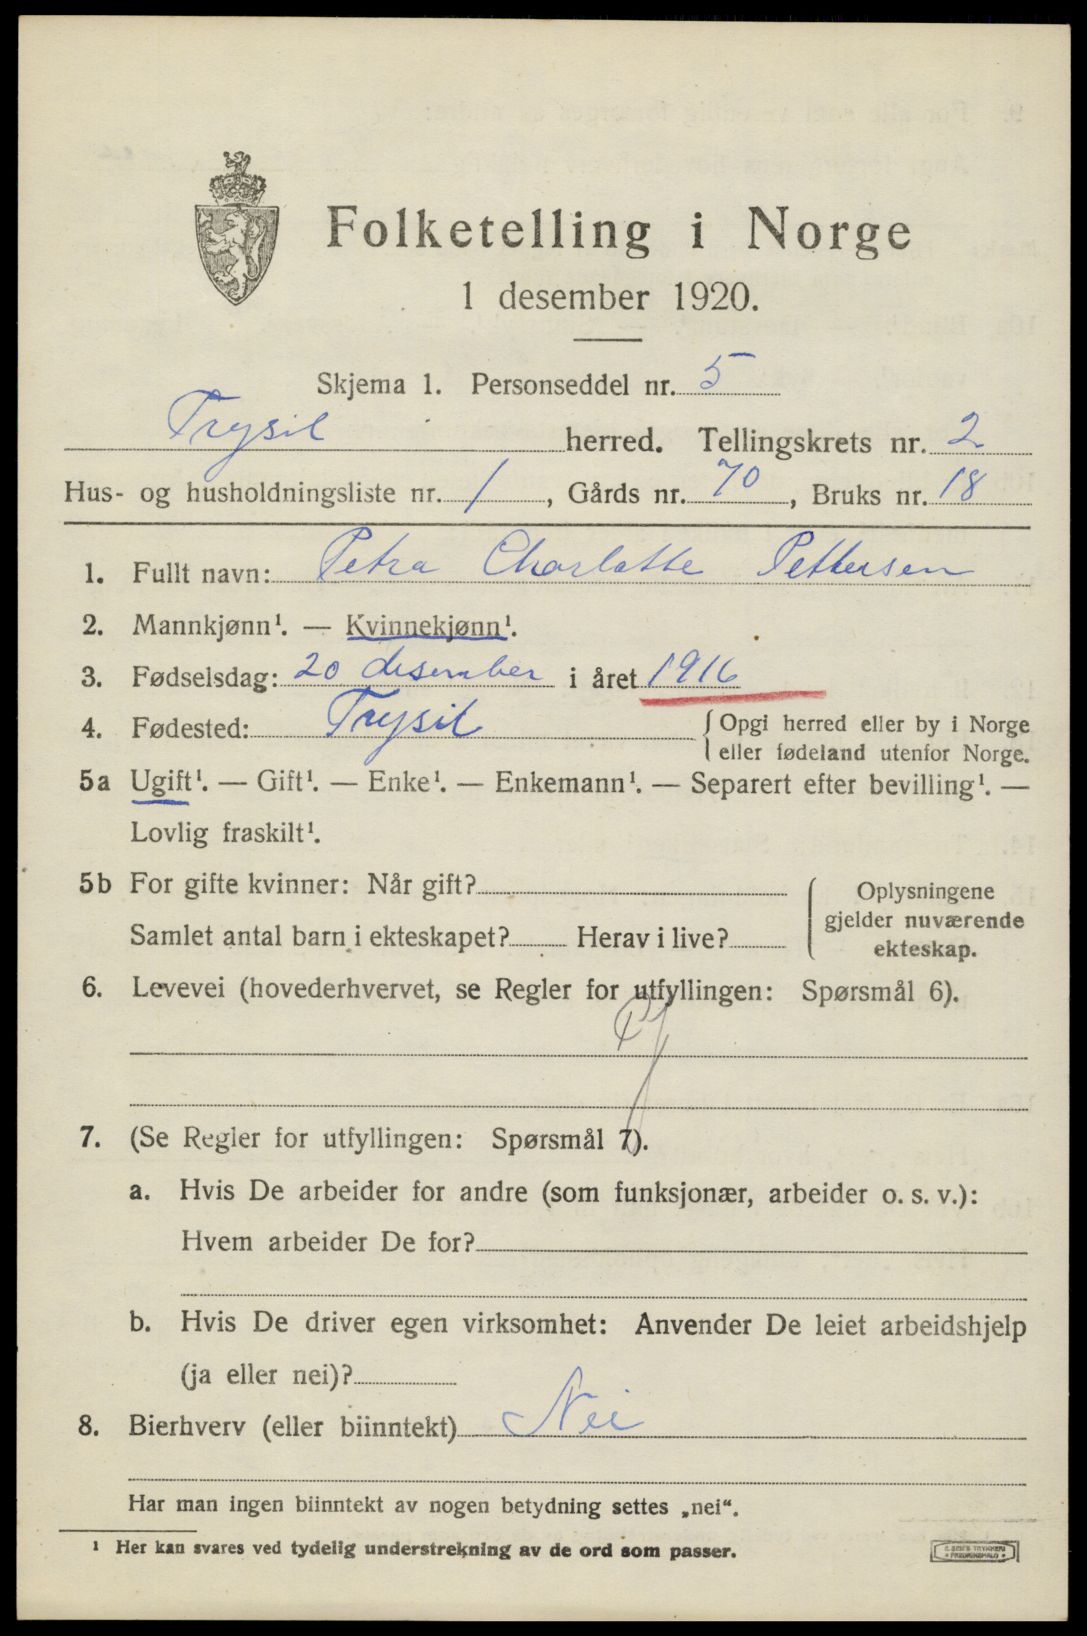 Folketelling i Norge
1 desember 1920.
Skjema 1. Personseddel nr. 5
Trysil herred. Tellingskrets nr. 2
Hus- og husholdningsliste nr. 1, Gårds nr. 70, Bruks nr. 18
1. Fullt navn: Petra Charlotte Pettersen
2. Mannkjønn¹. — Kvinnekjønn¹.
3. Fødselsdag: 20 desember i året 1916
4. Fødested: Trysil { Opgi herred eller by i Norge
eller fødeland utenfor Norge.
5a Ugift¹. — Gift¹. — Enke¹. — Enkemann¹. — Separert efter bevilling¹. —
Lovlig fraskilt¹.
5b For gifte kvinner: Når gift?
Samlet antal barn i ekteskapet? Herav i live?
{ Oplysningene
gjelder nuværende
ekteskap.
6. Levevei (hovederhvervet, se Regler for utfyllingen: Spørsmål 6).
7. (Se Regler for utfyllingen: Spørsmål 7).
a. Hvis De arbeider for andre (som funksjonær, arbeider o. s. v.):
Hvem arbeider De for?
b. Hvis De driver egen virksomhet: Anvender De leiet arbeidshjelp
(ja eller nei)?
8. Bierhverv (eller biinntekt) Nei
Har man ingen biinntekt av nogen betydning settes „nei“.
¹ Her kan svares ved tydelig understrekning av de ord som passer.